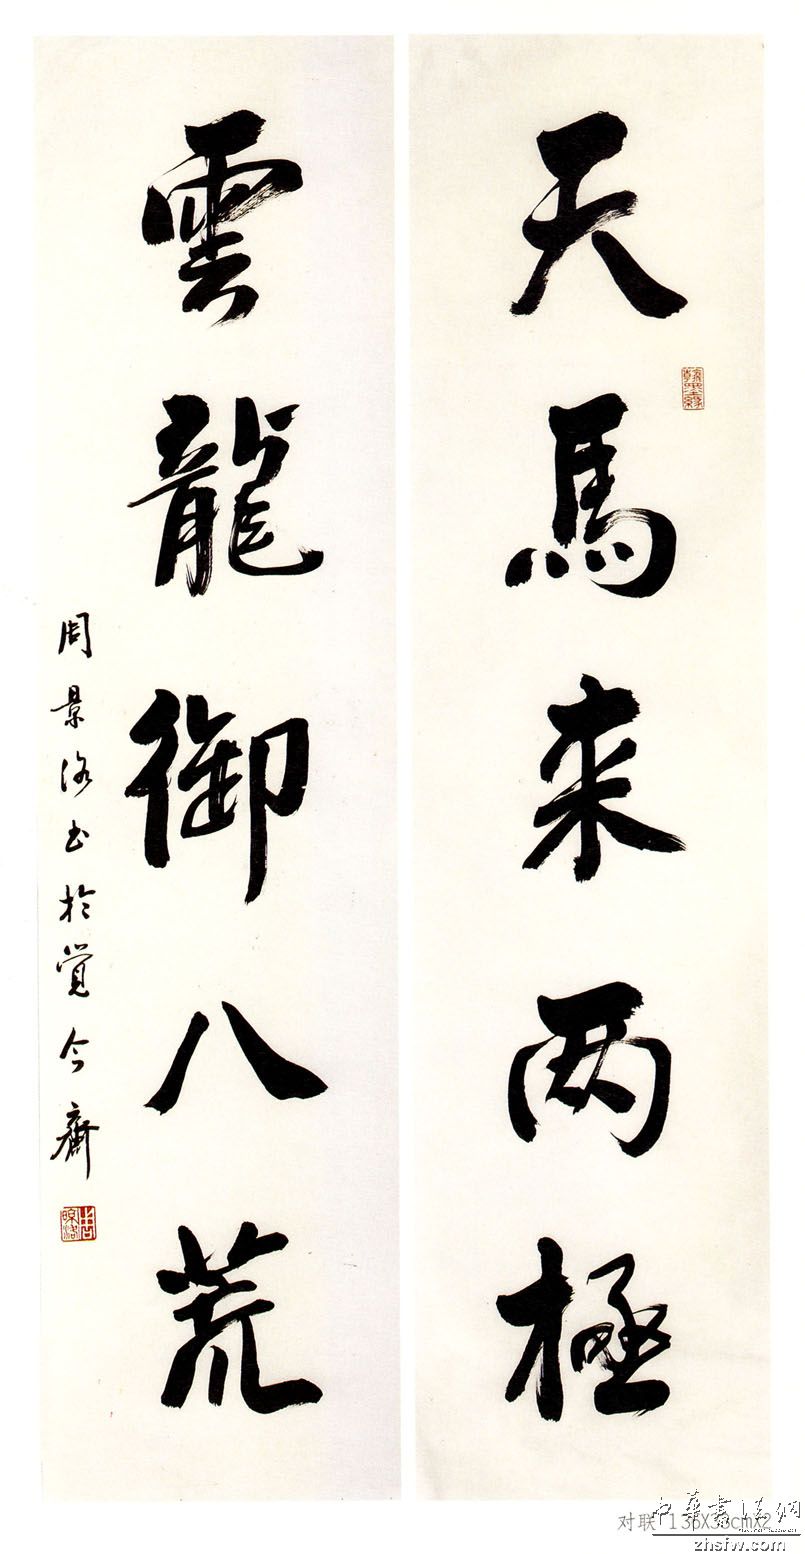 天馬来两極
雲龍御八荒
周景洛书於觉今齋
对联 136X33cmX2
中华书法网
zhsfw.com